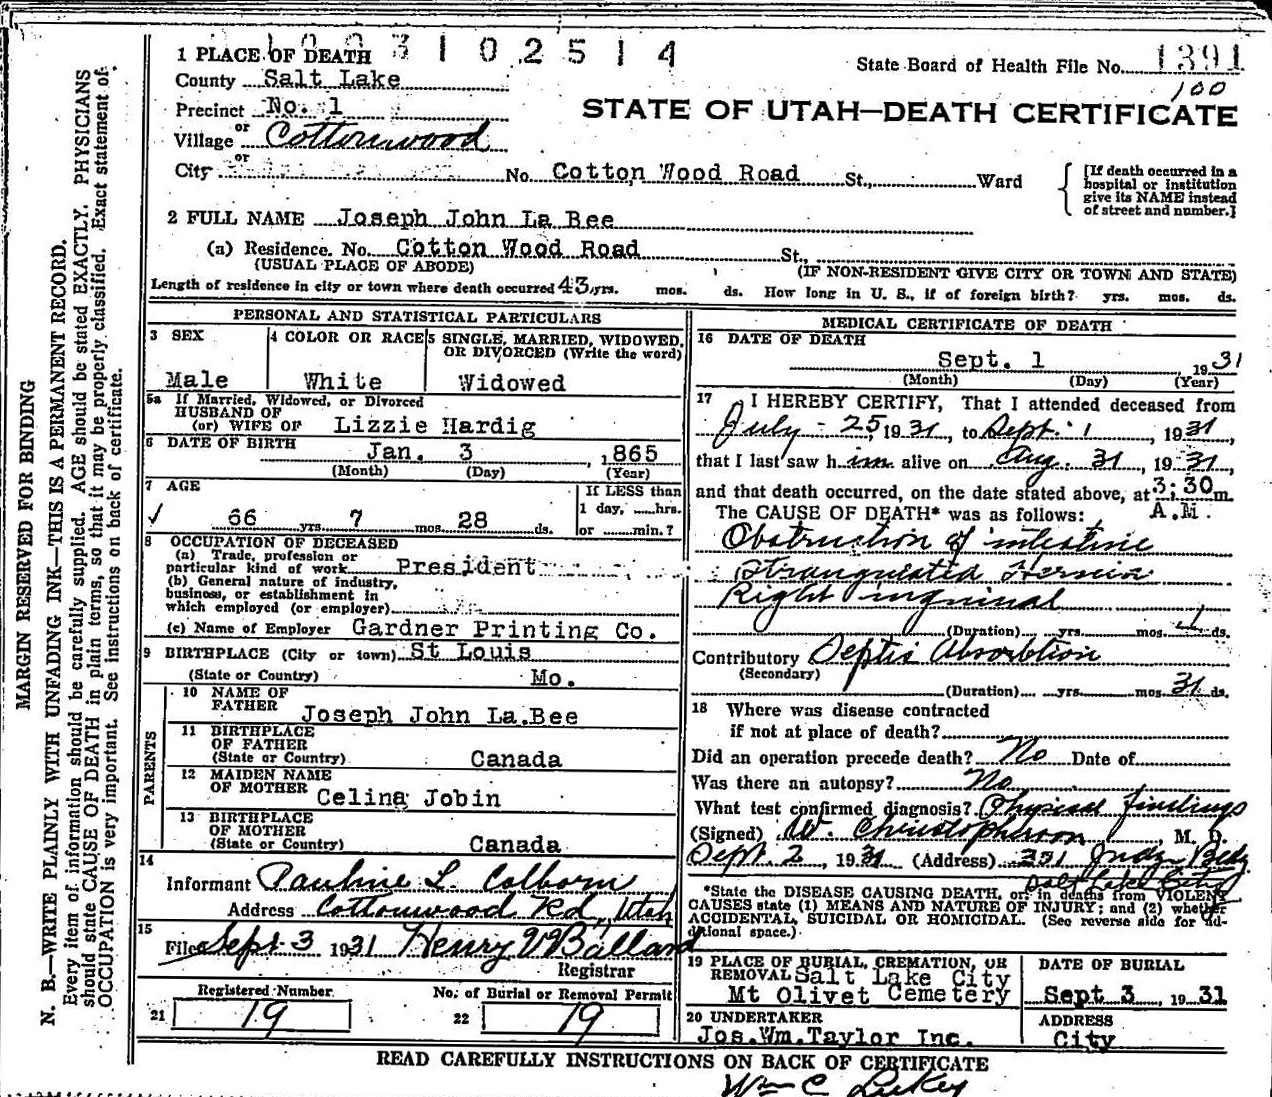 1 0 0 3 1 0 2 5 1 4
1 PLACE OF DEATH
State Board of Health File No. 1391
100
County Salt Lake
Precinct No. 1
STATE OF UTAH—DEATH CERTIFICATE
or
Village Cottonwood
or
City No. Cotton Wood Road St., Ward
[If death occurred in a hospital or institution give its NAME instead of street and number.]
2 FULL NAME Joseph John La Bee
(a) Residence. No. Cotton Wood Road St.,
(USUAL PLACE OF ABODE) (IF NON-RESIDENT GIVE CITY OR TOWN AND STATE)
Length of residence in city or town where death occurred 43 yrs. mos. ds. How long in U. S., if of foreign birth? yrs. mos. ds.
PERSONAL AND STATISTICAL PARTICULARS
3 SEX
Male
4 COLOR OR RACE
White
5 SINGLE, MARRIED, WIDOWED, OR DIVORCED (Write the word)
Widowed
5a If Married, Widowed, or Divorced
HUSBAND OF
(or) WIFE OF Lizzie Hardig
6 DATE OF BIRTH
Jan. 3, 1865
(Month) (Day) (Year)
7 AGE
✓ 66 yrs. 7 mos. 28 ds.
If LESS than
1 day, hrs.
or min.?
8 OCCUPATION OF DECEASED
(a) Trade, profession or
particular kind of work President
(b) General nature of industry,
business, or establishment in
which employed (or employer)
(c) Name of Employer Gardner Printing Co.
9 BIRTHPLACE (City or town) St Louis
(State or Country) Mo.
PARENTS
10 NAME OF
FATHER Joseph John La.Bee
11 BIRTHPLACE
OF FATHER
(State or Country) Canada
12 MAIDEN NAME
OF MOTHER Celina Jobin
13 BIRTHPLACE
OF MOTHER
(State or Country) Canada
14
Informant Pauline L. Colborn
Address Cottonwood Rd, Utah
15
Filed Sept 3 1931 Henry V Ballard
Registrar
Registered Number
21 19
No. of Burial or Removal Permit
22 19
MEDICAL CERTIFICATE OF DEATH
16 DATE OF DEATH
Sept. 1 1931
(Month) (Day) (Year)
17 I HEREBY CERTIFY, That I attended deceased from
July - 25, 1931, to Sept. 1, 1931,
that I last saw him alive on Aug. 31, 1931,
and that death occurred, on the date stated above, at 3:30 m.
The CAUSE OF DEATH* was as follows: A.M.
Obstruction of intestine
Strangulated Hernia
Right inguinal
(Duration) yrs. mos. 1 ds.
Contributory Septic Absorbtion
(Secondary)
(Duration) yrs. mos. 31 ds.
18 Where was disease contracted
if not at place of death?
Did an operation precede death? No Date of
Was there an autopsy? No
What test confirmed diagnosis? Physical findings
(Signed) W. Christopherson, M. D.
Sept 2, 1931 (Address) 331 Judge Bldg
Salt Lake City
*State the DISEASE CAUSING DEATH, or in deaths from VIOLENT
CAUSES state (1) MEANS AND NATURE OF INJURY; and (2) whether
ACCIDENTAL, SUICIDAL OR HOMICIDAL. (See reverse side for ad-
ditional space.)
19 PLACE OF BURIAL, CREMATION, OR
REMOVAL Salt Lake City
Mt Olivet Cemetery
DATE OF BURIAL
Sept 3, 1931
20 UNDERTAKER
Jos.Wm.Taylor Inc.
ADDRESS
City
READ CAREFULLY INSTRUCTIONS ON BACK OF CERTIFICATE
Wm C
MARGIN RESERVED FOR BINDING
N. B.—WRITE PLAINLY WITH UNFADING INK—THIS IS A PERMANENT RECORD.
Every item of information should be carefully supplied. AGE should be stated EXACTLY. PHYSICIANS
should state CAUSE OF DEATH in plain terms, so that it may be properly classified. Exact statement of
OCCUPATION is very important. See instructions on back of certificate.